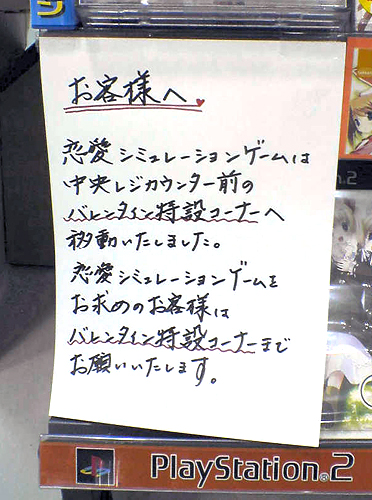 お客様へ
恋愛シミュレーションゲームは
中央レジカウンター前の
バレンタイン特設コーナーへ
移動いたしました。
恋愛シミュレーションゲームを
お求めのお客様は
バレンタイン特設コーナーまで
お願いいたします。
PlayStation®2